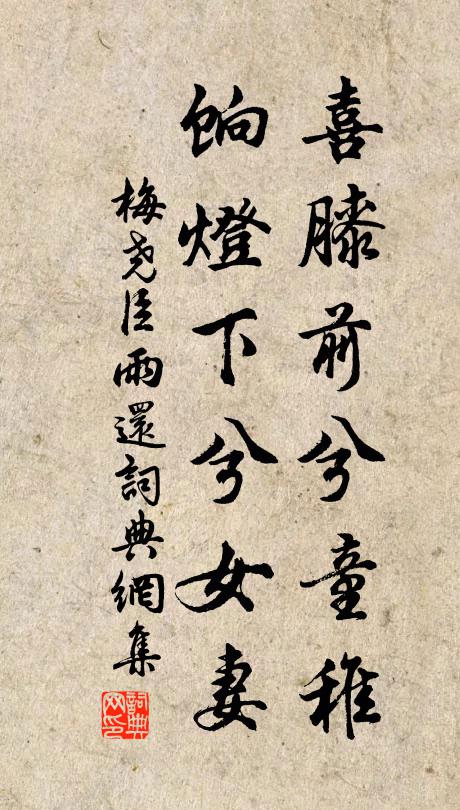 喜膝前兮童稚
餉燈下兮女妻
梅尧臣雨還詞典網集
詞典網印